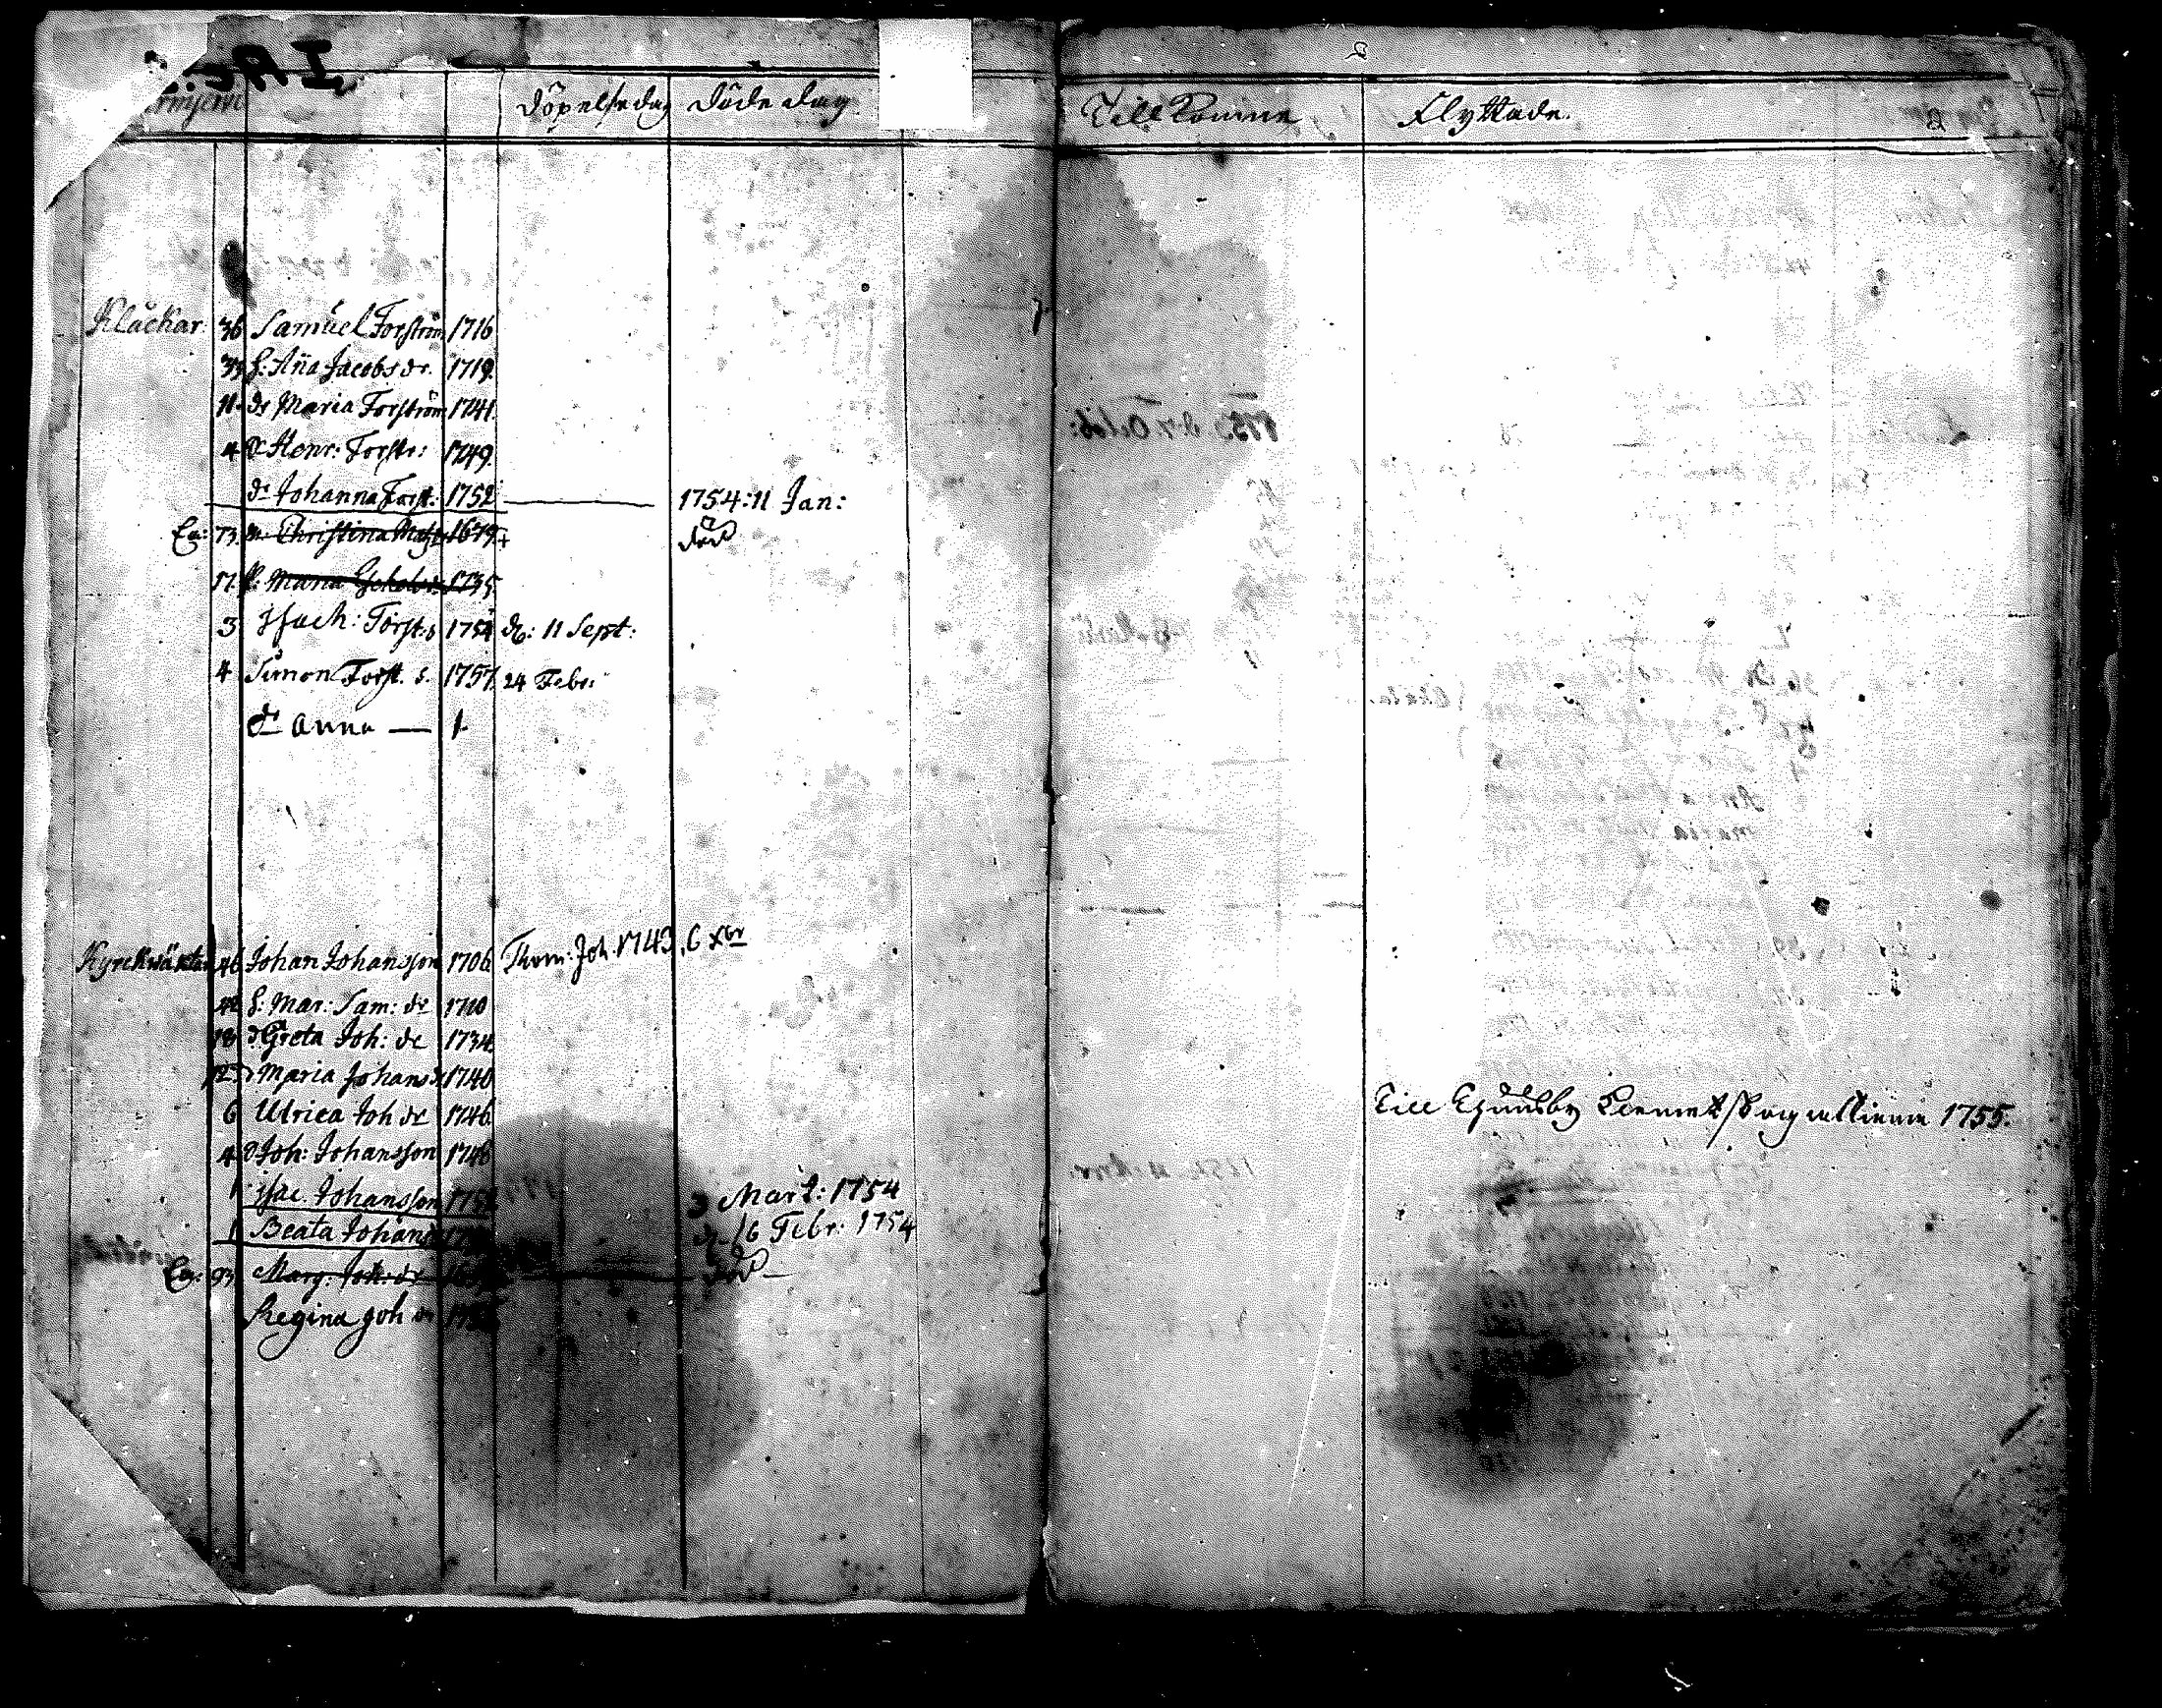 Döpelse dag Döde dag Tillkomne Flyttade. 2
Klåckar 36 Samuel Forström 1716
33 h: Aña Jacobs dr. 1719.
11. dr Maria Forström 1741.
4 dr Henr: Forstr: 1749.
dr Johanna Forst: 1752 1754: 11 Jan:
En: 73. Christina Mats 1679. + död
17. P: Maria 1735.
3 Jsach: Forst: s 1754 d: 11 Sept:
4 Simon Forst. s. 1757. 24 Febr:
dr Anna — 1.
Kyrckwäktar 46 Johan Johansson 1706. Thom: Joh. 1743. 6 Xbr
42 h: Mar: Sam: dr 1710
18 d. Greta Joh: dr 1734.
12. d Maria Johans dr 1740
6 Ulrica Joh dr 1746. 1755.
4 Joh: Johansson 1748
1 Jsac Johansson 3 Mart: 1754
1 Beata Johans d. 16 Febr: 1754
En: 93. Marg: Joh: dr död —
Regina Joh dr